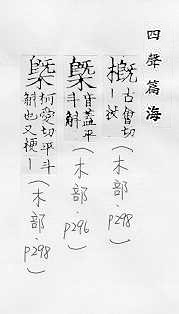 四聲篇海
概古會切
丨杚
（木部．P298）
槩古蓋平
斗斛
（木部．P296）
槩柯愛切平斗
斛也又梗丨
（木部．P298）